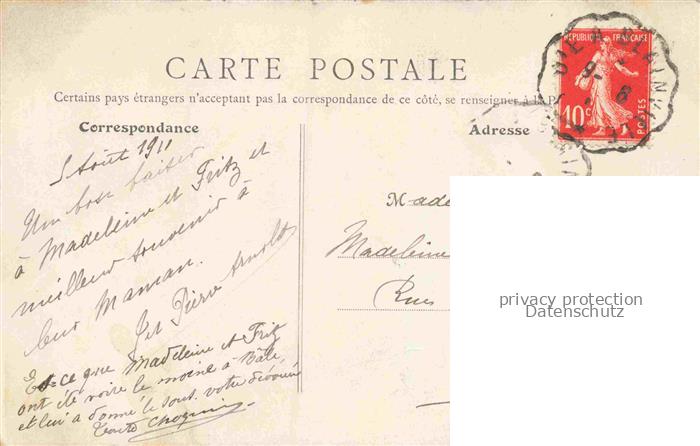 CARTE POSTALE
Certains pays étrangers n'acceptant pas la correspondance de ce côté, se renseigner à la P
Correspondance
Adresse
REPUBLIQUE FRANÇAISE
10c
POSTES
5 Août 1911
Un bon baiser
à Madeleine et Fritz et
meilleur souvenir à
leur Maman.
Pierre Arnold
Est-ce que Madeleine et Fritz
ont été voir le moine à Bâle,
et lui a donné le sous. votre dévouée
Made
Madeleine
Rue
privacy protection
Datenschutz